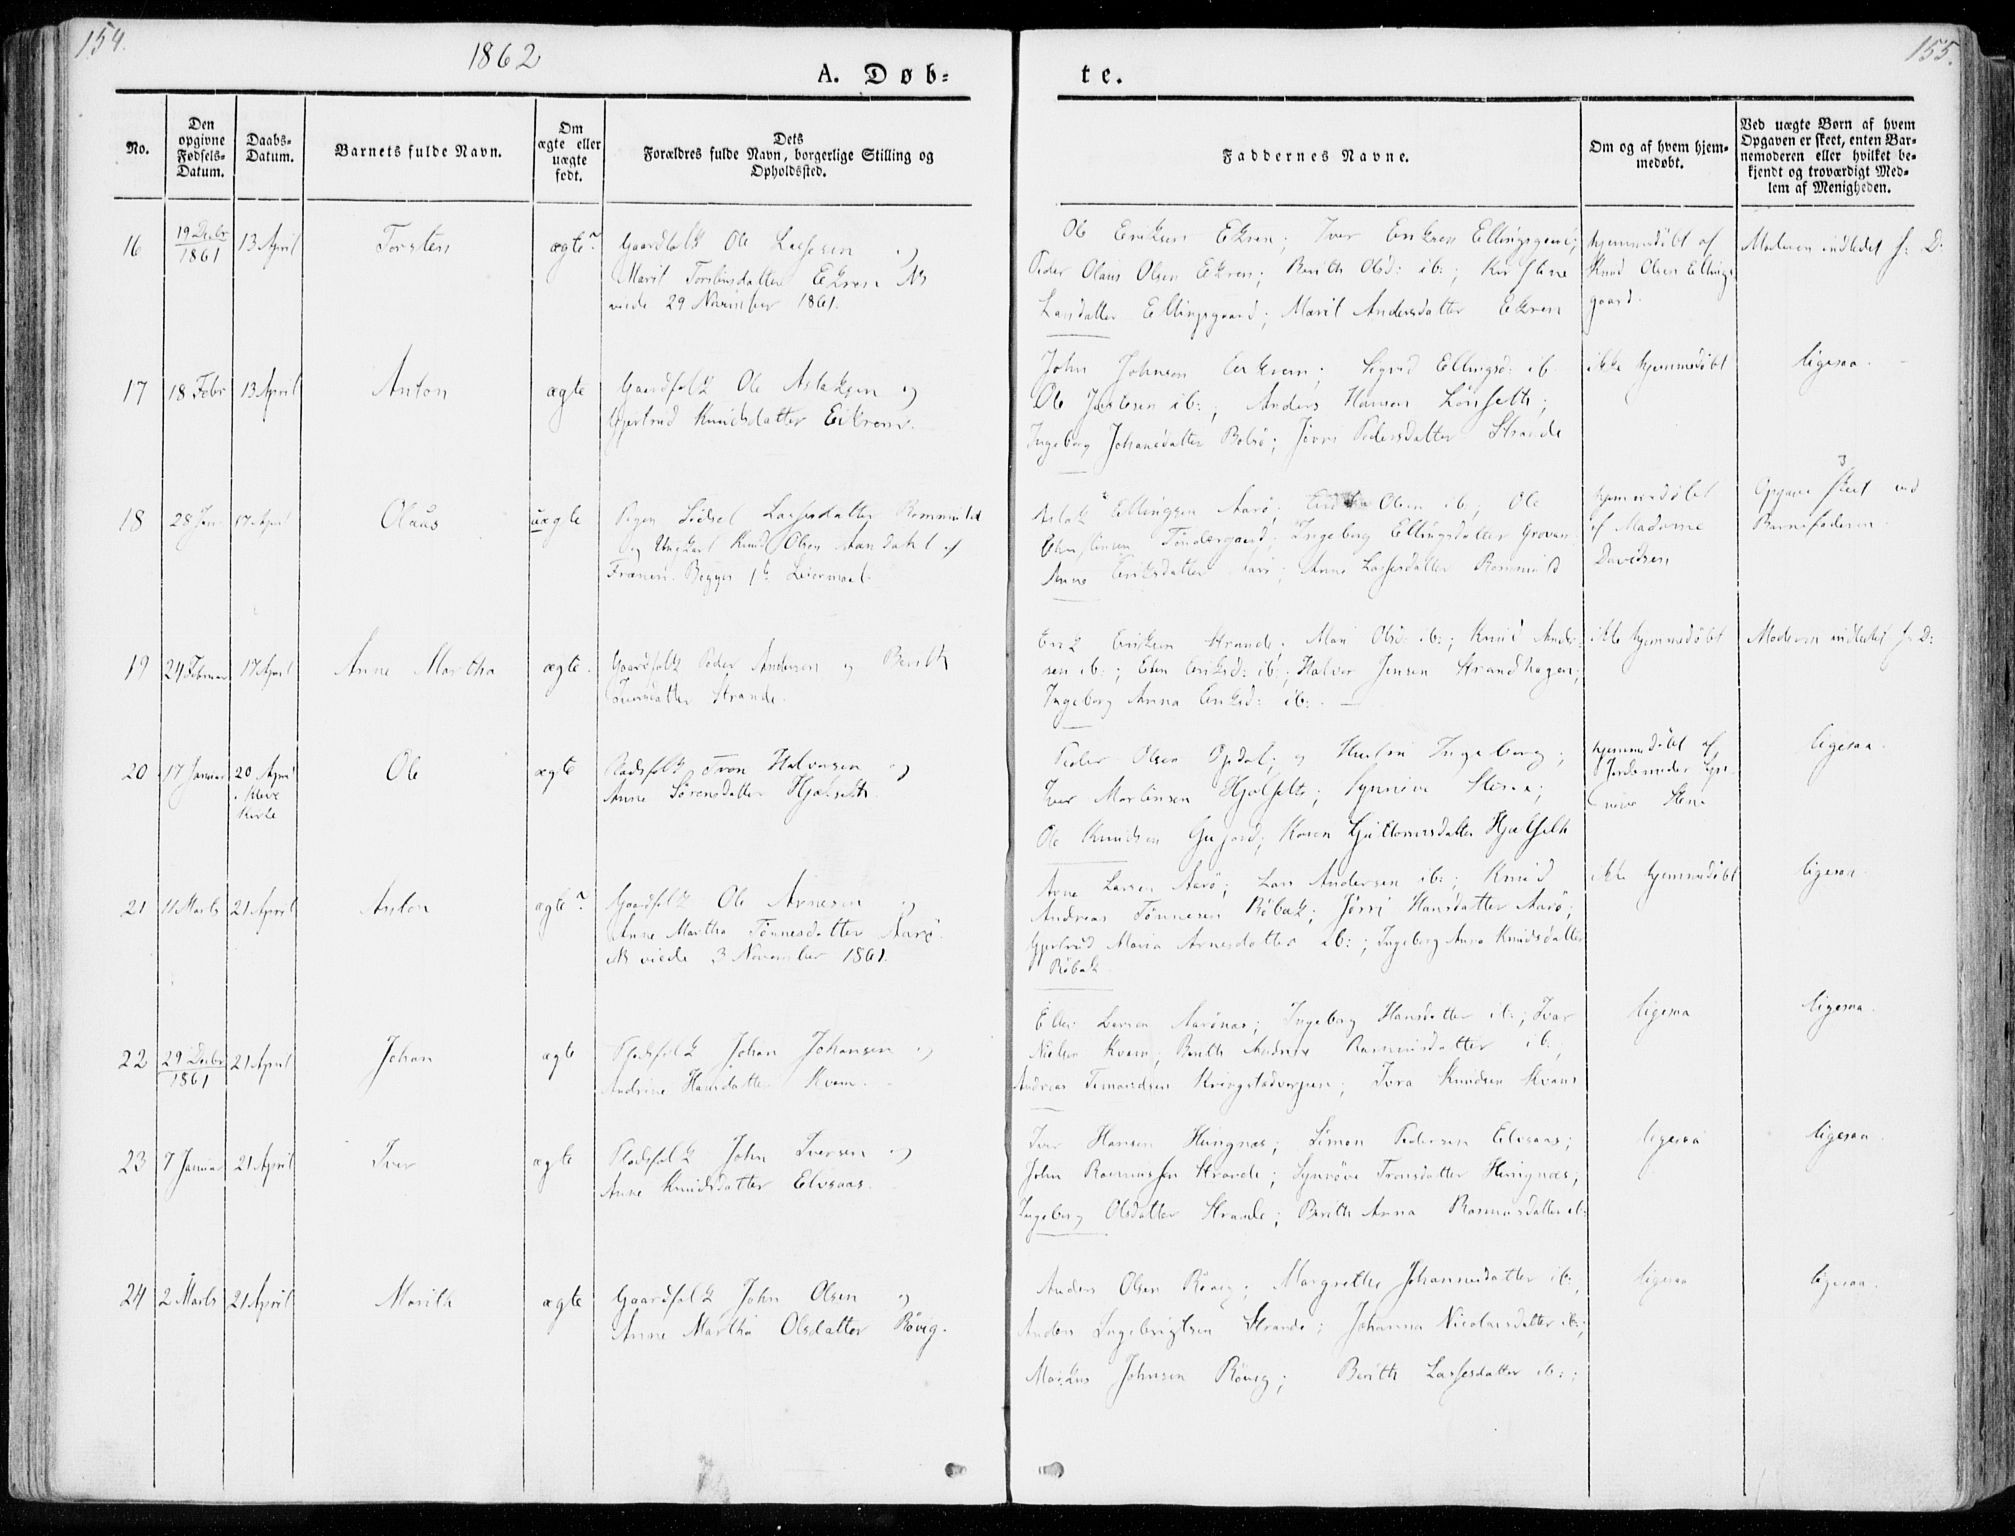 154.
1862
A. Døb=
te.
155.
No.
Den opgivne Fødsels-Datum.
Daabs-Datum.
Barnets fulde Navn.
Om ægte eller uægte født.
Dets Forældres fulde Navn, borgerlige Stilling og Opholdssted.
Faddernes Navne.
Om og af hvem hjemmedøbt.
Ved uægte Børn af hvem Opgaven er skeet, enten Barnemoderen eller hvilket bekjendt og troværdigt Medlem af Menigheden.
16 19 Decbr 1861 13 April Torsten ægte
Gaardfolk Ole Lassesen og
Marit Torstensdatter Ekren NB
viede 29 November 1861.
Ole Eriksen Ekren; Iver Eriksen Ellingsgaard;
Peder Olaus Olsen Ekren; Berith Olsd: ib:; Kirstene
Larsdatter Ellingsgaard; Marit Andersdatter Ekren
hjemmedøbt af
Knud Olsen Ellings
gaard.
Moderen indledet s: D:
17 18 Febr 13 April Anton ægte
Gaardfolk Ole Aslaksen og
Gjertrud Knudsdatter Eikrem.
John Johnsen Eikrem; Sigrid Ellingsd: ib:
Ole ib:; Anders Hansen Lønseth;
Ingeborg Johansdatter Bolsø; Jörri Pedersdatter Strande
ikke hjemmedøbt
ligesaa.
18 28 Jan 17 April Olaus uægte
Pigen Sidsel Lassesdatter
og Ungkarl Knud Olsen af
Frænen. Begges 1te Leiermaal.
Aslak Ellingsen Aarø; Olsen ib, Ole
Tøndergaard; Ingeborg Ellingsdatter
Anne Eriksdatter Aarø; Anne Lassesdatter
hjemmedøbt
af Madame
Davidsen
Opgave skeet ved
Barnefaderen.
19 24 Februar 17 April Anne Martha ægte.
Gaardfolk Peder Andersen og Berith
Iversdatter Strande.
Erik Eriksen Strande; Mari Olsd: ib:; Knud Ander-
sen ib:; Eriksd: ib:; Halvor Jensen Strandhagen;
Ingeborg Anna Eriksd: ib:
ikke hjemmedøbt
Moderen indledet s: D:
20 17 Januar 20 April i Kleve Kirke Ole ægte
Pladsfolk Halvorsen og
Anne Sörensdatter Hjelseth.
Peder Olsen Opdal; og Hustru Ingeborg;
Iver Mortensen Hjelseth; Synnöve Stene;
Ole Knudsen Gujord; Karen Guttormsdatter Hjelseth
hjemmedøbt af
Jordemoder Syn-
növe Stene
ligesaa.
21 11 Marts 21 April Anton ægte
Gaardfolk Ole Arnesen og
Anne Martha Tönnesdatter Aarø.
NB viede 3 November 1861.
Arne Larsen Aarø; Lars Andersen ib:; Knud
Andreas Tönnesen Röbæk; Jörri Hansdatter Aarø;
Gjertrud Maria Arnesdatter ib:; Ingeborg Anna Knudsdatter
Röbæk.
ikke hjemmedøbt
ligesaa
22 29 Decbr 1861 21 April Johan ægte
Pladsfolk Johan Johansen og
Andrine Hansdatter Kvam.
Larsen Aarönæs; Ingeborg Hansdatter ib:; Ivar
Nielsen Kvam; Berith Rasmusdatter ib:,
Andreas Kringstadvorpen; Knudsen Kvam
ligesaa
ligesaa.
23 7 Januar 21 April Iver ægte
Pladsfolk John Iversen og
Anne Knudsdatter Elvsaas.
Iver Hansen Hungnæs; Simon Pedersen Elvsaas;
John Rasmussen Strande; Synnöve Tronsdatter Hungnæs;
Ingeborg Olsdatter Strande; Berith Anna Rasmusdatter ib:
ligesaa
ligesaa.
24 2 Marts 21 April Marith ægte
Gaardfolk John Olsen og
Anne Martha Olsdatter Røvig.
Anders Olsen Røvig; Margrethe Johannesdatter ib:,
Anders Ingebrigtsen Strande; Johanna Nicolaisdatter ib:;
Markus Johnsen Røvig; Berith Lassesdatter ib:;
ligesaa
ligesaa.